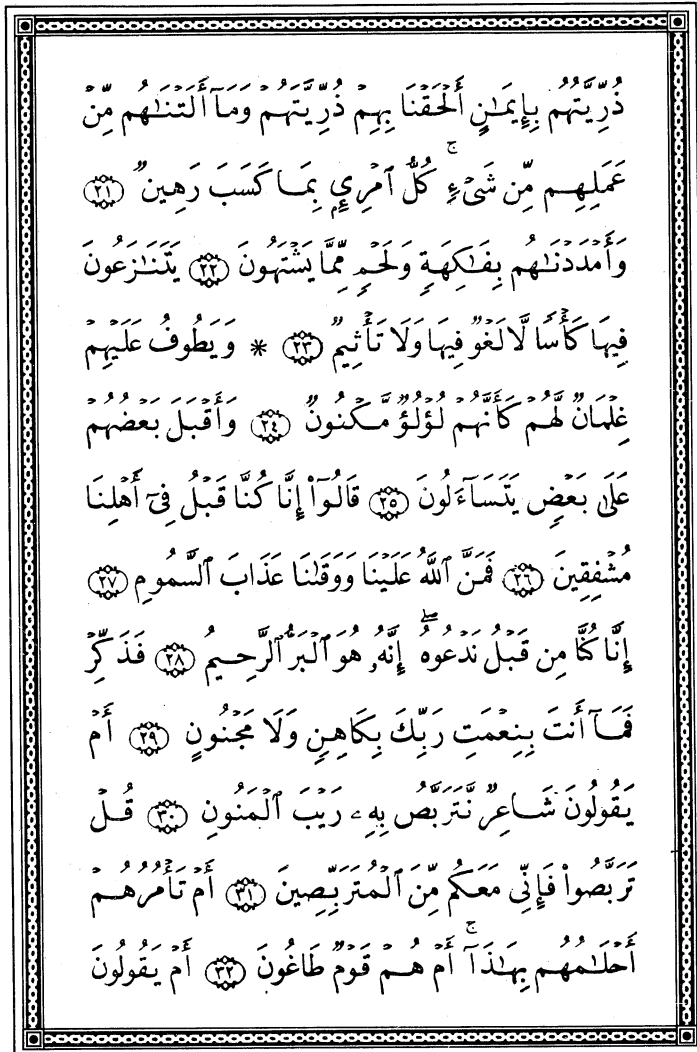 ذُرِّيَّتُهُم بِإِيمَـٰنٍ أَلْحَقْنَا بِهِمْ ذُرِّيَّتَهُمْ وَمَآ أَلَتْنَـٰهُم مِّنْ
عَمَلِهِم مِّن شَىْءٍ ۚ كُلُّ ٱمْرِئٍۭ بِمَا كَسَبَ رَهِينٌ ﴿٢١﴾
وَأَمْدَدْنَـٰهُم بِفَـٰكِهَةٍ وَلَحْمٍ مِّمَّا يَشْتَهُونَ ﴿٢٢﴾ يَتَنَـٰزَعُونَ
فِيهَا كَأْسًا لَّا لَغْوٌ فِيهَا وَلَا تَأْثِيمٌ ﴿٢٣﴾ * وَيَطُوفُ عَلَيْهِمْ
غِلْمَانٌ لَّهُمْ كَأَنَّهُمْ لُؤْلُؤٌ مَّكْنُونٌ ﴿٢٤﴾ وَأَقْبَلَ بَعْضُهُمْ
عَلَىٰ بَعْضٍ يَتَسَآءَلُونَ ﴿٢٥﴾ قَالُوٓا۟ إِنَّا كُنَّا قَبْلُ فِىٓ أَهْلِنَا
مُشْفِقِينَ ﴿٢٦﴾ فَمَنَّ ٱللَّهُ عَلَيْنَا وَوَقَىٰنَا عَذَابَ ٱلسَّمُومِ ﴿٢٧﴾
إِنَّا كُنَّا مِن قَبْلُ نَدْعُوهُ ۖ إِنَّهُۥ هُوَ ٱلْبَرُّ ٱلرَّحِيمُ ﴿٢٨﴾ فَذَكِّرْ
فَمَآ أَنتَ بِنِعْمَتِ رَبِّكَ بِكَاهِنٍ وَلَا مَجْنُونٍ ﴿٢٩﴾ أَمْ
يَقُولُونَ شَاعِرٌ نَّتَرَبَّصُ بِهِۦ رَيْبَ ٱلْمَنُونِ ﴿٣٠﴾ قُلْ
تَرَبَّصُوا۟ فَإِنِّى مَعَكُم مِّنَ ٱلْمُتَرَبِّصِينَ ﴿٣١﴾ أَمْ تَأْمُرُهُمْ
أَحْلَـٰمُهُم بِهَـٰذَآ ۚ أَمْ هُمْ قَوْمٌ طَاغُونَ ﴿٣٢﴾ أَمْ يَقُولُونَ